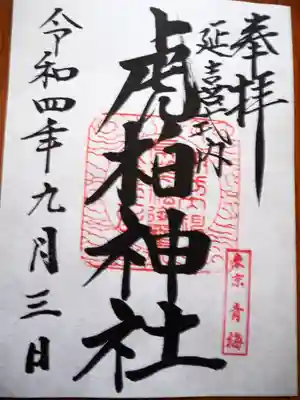 奉拝
延喜式内
虎柏神社
令和四年九月三日
東京 青梅